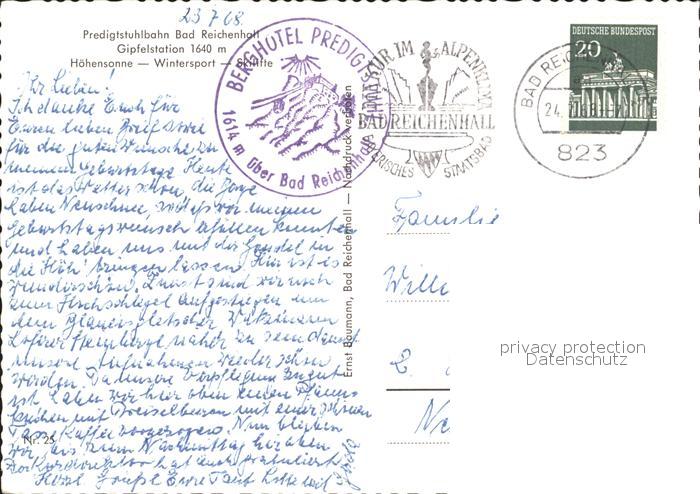 23.7.68.
Predigtstuhlbahn Bad Reichenhall
Gipfelstation 1640 m
Höhensonne — Wintersport — Skilifte
BERGHOTEL PREDIGTSTUHL
1614 m über Bad Reichenhall
KUR IM ALPENKLIMA
BAD REICHENHALL
BAYERISCHES STAATSBAD
DEUTSCHE BUNDESPOST
20
BAD REICHENHALL
24.
823
Ihr Lieben!
Ich danke Euch für
Euren lieben Brief sowie
für die guten Wünsche zu
meinem Geburtstage. Heute
ist das Wetter schön, die Berge
haben Neuschnee, so daß wir meinen
Geburtstagswunsch erfüllen konnten
und haben uns mit der Gondel in
die Höh' bringen lassen. Hier ist es
wunderschön. Zuerst sind wir noch
zum Hochschlegel aufgestiegen um
dem Blaueisgletscher Watzmann
Loferer Steinberge näher zu sein damit
unsere Aufnahmen wieder schön
werden. Da unsere Verpflegung
ist haben wir hier oben einen Pfann-
kuchen mit Preiselbeeren mit einer schönen
Tasse Kaffee vorgezogen. Nun bleiben
wir bis zum Nachmittag hier oben
Der Kurdirektor hat auch gratuliert
Herzl. Grüße Eure Tant
Nr. 25
Ernst Baumann, Bad Reichenhall — Nachdruck verboten
Familie
Wille
2.
privacy protection
Datenschutz